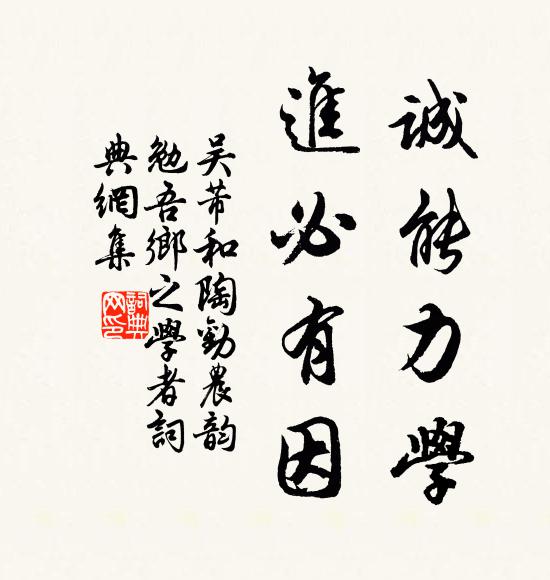 誠能力學
進必有因
吳芾和陶勸農韵
勉吾鄉之學者詞
典網集
詞典
网印